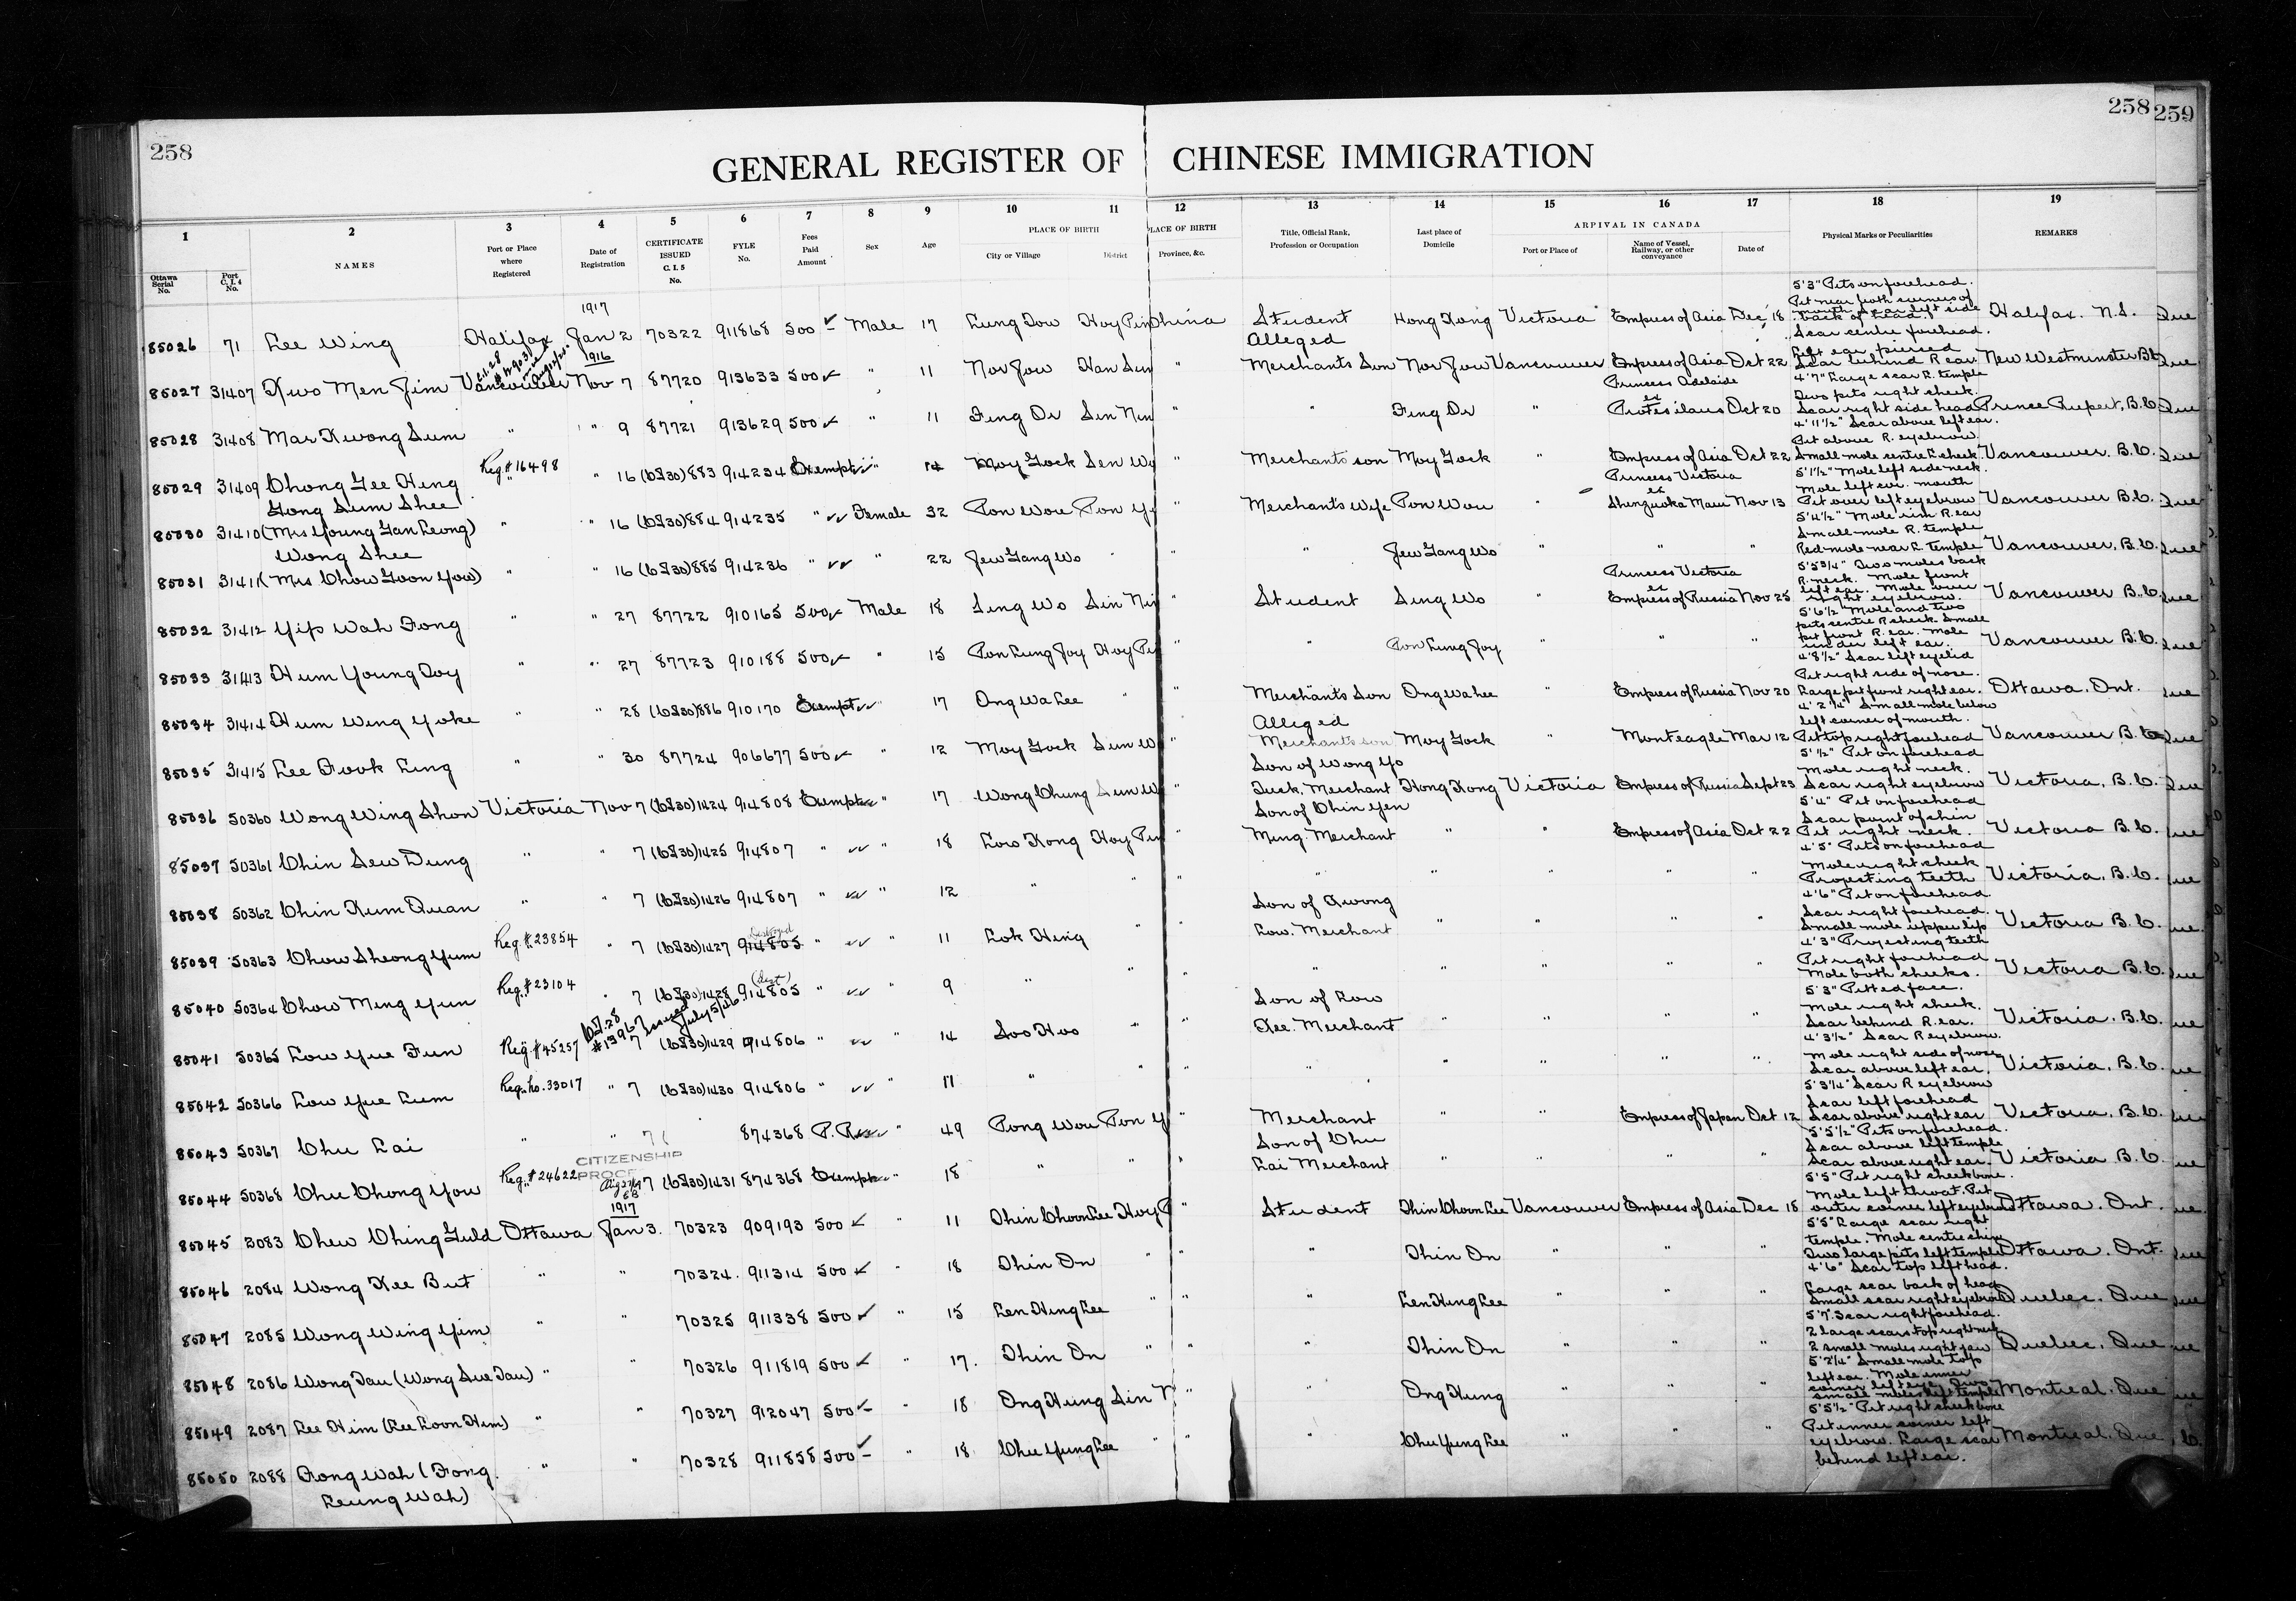 258
258
259
GENERAL REGISTER OF CHINESE IMMIGRATION
1 2 3 4 5 6 7 8 9 10 11 12 13 14 15 16 17 18 19
Ottawa Serial No. Port C. I. 4 No. NAMES Port or Place where Registered Date of Registration CERTIFICATE ISSUED C. I. 5 No. FYLE No. Fees Paid Amount Sex Age PLACE OF BIRTH City or Village District PLACE OF BIRTH Province, &c. Title, Official Rank, Profession or Occupation Last place of Domicile ARRIVAL IN CANADA Port or Place of Name of Vessel, Railway, or other conveyance Date of Physical Marks or Peculiarities REMARKS
1917
85026 71 Lee Wing Halifax Jan 2 70322 911868 500 Male 17 Lung Dow Hoy Pin China Student Hong Kong Victoria Empress of Asia Dec 18 5'3" Pits on forehead. Halifax. N.S.
1916
85027 31407 Kwo Men Jim Vancouver Nov 7 87720 913633 500 " 11 Nor Jow Han Sun " Alleged Merchants Son Nor Jow Vancouver Empress of Asia Oct 22 Scar centre forehead. Left ear pierced Scar behind R ear. New Westminster B.C.
85028 31408 Mar Kwong Sum " " 9 87721 913629 500 " 11 Fing Dr Sin Nin " " Fing Dr " Princess Adelaide ex Protesilaus Oct 20 4'7" Large scar R. temple Two pits right cheek. Scar right side head Prince Rupert, B.C.
85029 31409 Chong Gee Heng Reg.# 16498 " 16 (C.I.30) 883 914234 Exempt " 14 Moy Gock Sen Wy " Merchants son Moy Gock " Empress of Asia Oct 22 4'11 1/2" Scar above left ear. Pit above R. eyebrow. Small mole centre L cheek Vancouver. B.C.
85030 31410 Gong Sum Shee (Mrs Young Gan Leong) " " 16 (C.I.30) 884 914235 " Female 32 Pon Wou Pon Y " Merchant's Wife Pon Wou " Princess Victoria ex Shidzuoka Maru Nov 13 5'1 1/2" Mole left side neck. Mole left cor. mouth Pit over left eyebrow Vancouver B.C.
85031 31411 Wong Shee (Mrs Chow Goon Yow) " " 16 (C.I.30) 885 914236 " " 22 Jew Gang Wo " " " Jew Gang Wo " " " 5'4 1/2" Mole rim R. ear Small mole R. temple Red mole near L temple Vancouver, B.C.
85032 31412 Yip Wah Fong " " 27 87722 910165 500 Male 18 Sing Wo Sin Nin " Student Sing Wo " Princess Victoria ex Empress of Russia Nov 25 5'5 3/4" Two moles back R. neck. Mole front left ear. Mole over right eyebrow. Vancouver B.C.
85033 31413 Hum Young Doy " " 27 87723 910188 500 " 15 Pon Lung Joy Hoy Pin " " Pon Lung Joy " " " 5'6 1/2" Mole and two pits centre R cheek. Small pit front R. ear. Mole under left ear. Vancouver B.C.
85034 31414 Hum Wing Yoke " " 28 (C.I.30) 886 910170 Exempt " 17 Ong Wa Lee " " Merchants Son Ong Wa Lee " Empress of Russia Nov 20 4'8 1/2" Scar left eyelid Pit right side of nose. Large pit front right ear. Ottawa. Ont.
85035 31415 Lee Fook Ling " " 30 87724 906677 500 " 12 Moy Gock Sun W " Alleged Merchants son Moy Gock " Monteagle Mar 12 4' 2 1/4" Small mole below left corner of mouth. Pit top right forehead Vancouver B.C.
85036 50360 Wong Wing Shon Victoria Nov 7 (C.I.30) 1424 914808 Exempt " 17 Wong Chung Sun W " Son of Wong Yo Suck. Merchant Hong Kong Victoria Empress of Russia Sept 23 5' 1/2" Pit on forehead Mole right neck. Scar right eyebrow Victoria, B.C.
85037 50361 Chin Sew Dung " " 7 (C.I.30) 1425 914807 " " 18 Low Kong Hoy Pin " Son of Chin Yen Ming. Merchant " " Empress of Asia Oct 22 5'4" Pit on forehead Scar point of chin Pit right neck. Victoria B.C.
85038 50362 Chin Kum Quan " " 7 (C.I.30) 1426 914807 " " 12 " " " " " " " " 4'5" Pits on forehead Mole right cheek Projecting teeth Victoria, B.C.
85039 50363 Chow Sheong Yum Reg. #.23854 " 7 (C.I.30) 1427 914805 " " 11 Lok Hing " " Son of Kwong Low. Merchant " " " " 4'6" Pit on forehead Scar right forehead. Small mole upper lip Victoria B.C.
85040 50364 Chow Ming Yun Reg. #23104 " 7 (C.I.30) 1428 914805 " " 9 " " " " " " " " 4'3" Projecting teeth Pit right forehead Mole both cheeks. Victoria B.C.
85041 50365 Low Yue Fun Reg #45257 C.I.28 #13967 issued July 5/26 7 (C.I.30) 1429 914806 " " 14 Soo Hoo " " Son of Low Kee. Merchant " " " " 5'3" Pitted face. Mole right cheek. Scar behind R. ear. Victoria, B.C.
85042 50366 Low Yue Lum Reg. No. 33017 " 7 (C.I.30) 1430 914806 " " 11 " " " " " " " " 4'3 1/2" Scar R eyebrow. Mole right side of nose Scar above left ear. Victoria, B.C.
85043 50367 Chu Lai " " 7 874368 P. R. " 49 Pong Wou Pon Y " Merchant " " Empress of Japan Oct 12 5'3 1/4" Scar R eyebrow Scar left forehead Scar above right ear Victoria, B.C.
CITIZENSHIP
85044 50368 Chu Chong You Reg. # 24622 7 (C.I.30) 1431 874368 Exempt " 18 " " " Son of Chu Lai Merchant " " " " 5'5 1/2" Pits on forehead. Scar above left temple Scar above right ear. Victoria B.C.
1917
85045 2083 Chew Ching Guld Ottawa Jan 3. 70323 909193 500 " 11 Thin Choon Lee Hoy P " Student Thin Choon Lee Vancouver Empress of Asia Dec 18 5'5" Pit right cheekbone. Mole left throat. Pit outer corner left eyebrow Ottawa. Ont.
85046 2084 Wong Kee But " " 70324 911314 500 " 18 Thin On " " " Thin On " " " 5'5" Large scar right temple. Mole centre chin Two large pits left temple Ottawa. Ont.
85047 2085 Wong Wing Yim " " 70325 911338 500 " 15 Len Hing Lee " " " Len Hing Lee " " " 4'6" Scar top left head. Large scar back of head Small scar right eyebrow Quebec. Que
85048 2086 Wong Dau (Wong Sue Dau) " " 70326 911819 500 " 17. Thin On " " " Thin On " " " 5'7" Scar right forehead. 2 large scars top right neck 2 small moles right jaw Quebec. Que
85049 2087 Lee Him (Lee Loon Him) " " 70327 912047 500 " 18 Ong Hung Sin N " " Ong Hung " " " 5'2 1/4" Small mole top left ear. Mole inner corner left eye. Two small moles left temple Montreal. Que
85050 2088 Fong Wah (Fong Leung Wah) " " 70328 911858 500 " 18 Chu Yung Lee " " " Chu Yung Lee " " " 5'5 1/2" Pit right cheek bone Pit inner corner left eyebrow. Large scar behind left ear. Montreal. Que